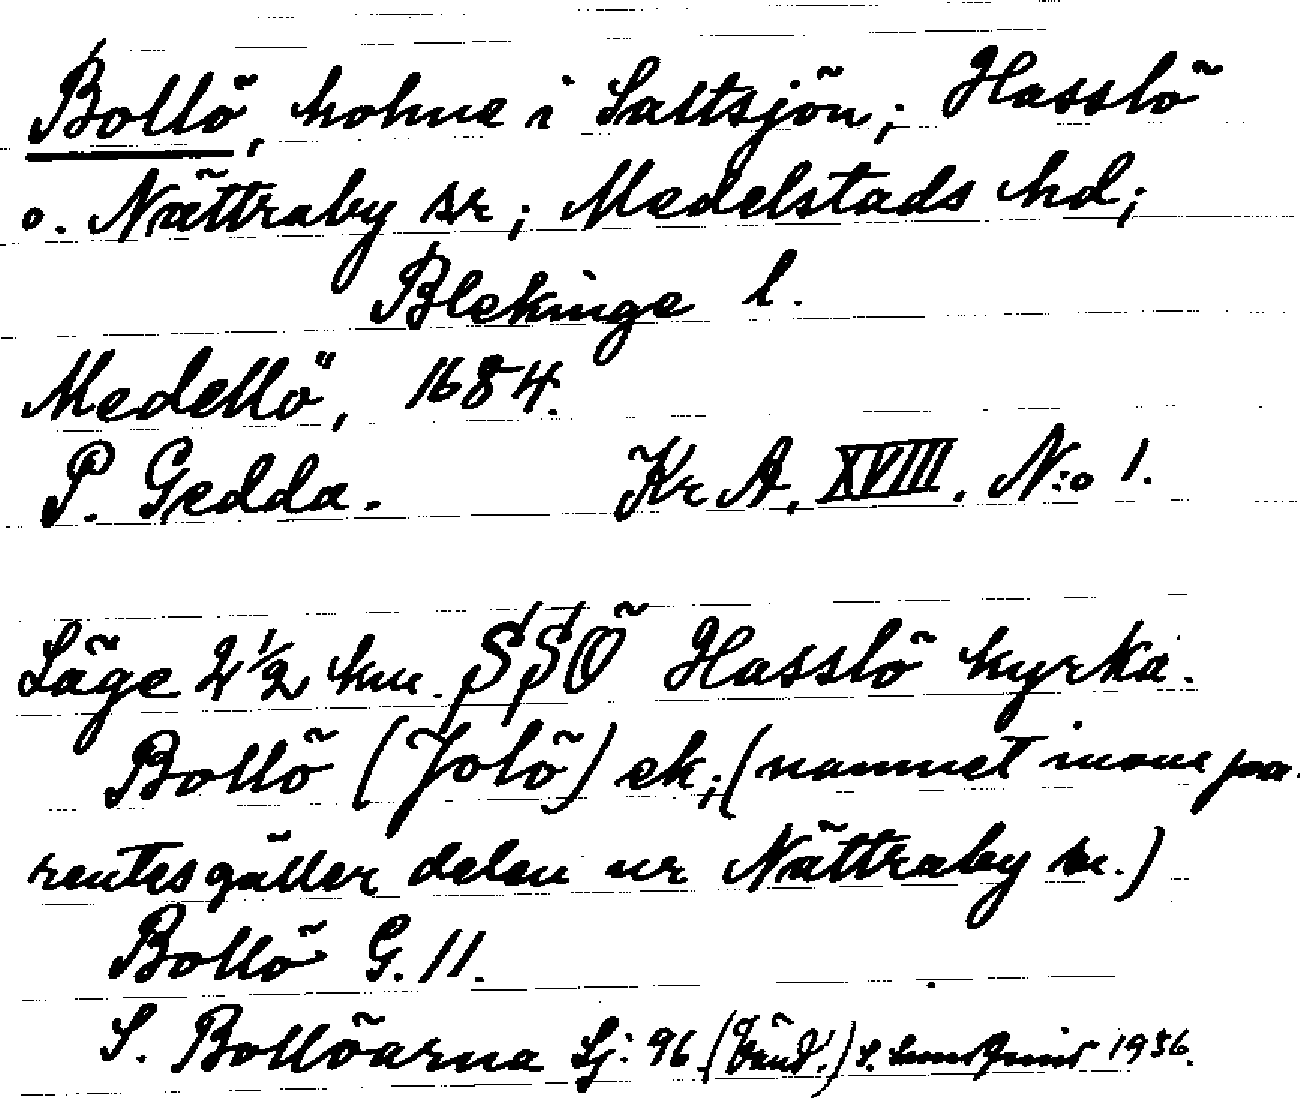 Bollö, holme i Saltsjön; Hasslö
o. Nättraby sr; Medelstads hd;
Blekinge l.
Medellö, 1684.
P. Gedda. Kr A, XVIII. N:o 1.
Läge 2 1/2 km. SSÖ Hasslö kyrka.
Bollö (Jolö) ek; (namnet inom pa-
rentes gäller delen ur Nättraby sn.)
Bollö G. 11.
S. Bollöarna Sj: 96 1936.